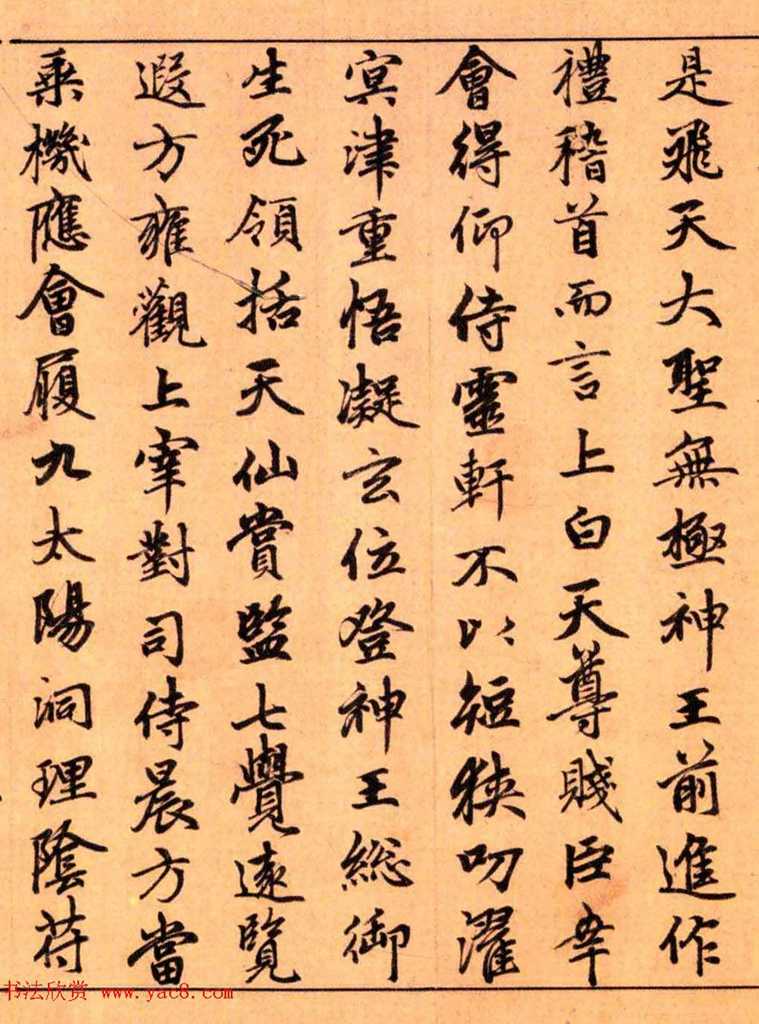 是飛天大聖無極神王前進作
禮稽首而言上白天尊賤臣幸
會得仰侍靈軒不以短狹叨濯
冥津重悟凝玄位登神王総御
生死領括天仙賞監七覺遠覽
遐方雍觀上宰對司侍晨方當
乘機應會履九太陽洞理陰苻
书法欣赏 www.yac8.com